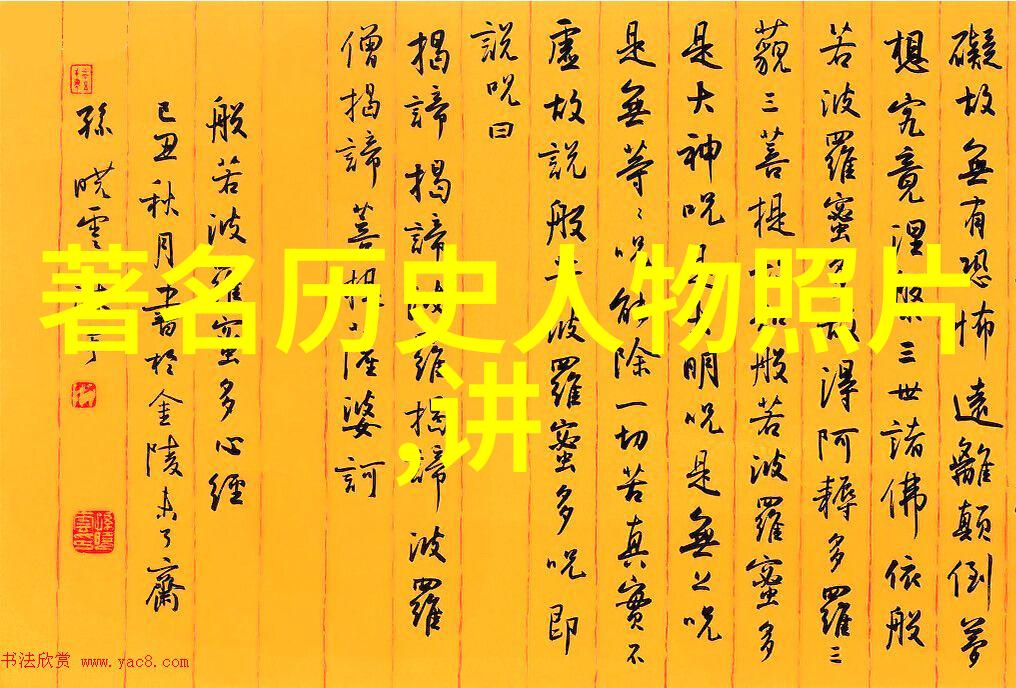 礙故無有恐怖遠離顛倒夢
想究竟涅槃三世諸佛依般
若波羅蜜多故得阿耨多羅三
藐三菩提故知般若波羅蜜多
是大神咒是大明咒是無上咒
是無等々咒能除一切苦真實不
虛故說般若波羅蜜多咒即
說咒曰
揭諦揭諦波羅揭諦波羅
僧揭諦菩提薩婆訶
般若波羅蜜多心經
己丑秋月書於金陵未了齋
孫曉雲
著名历史人物照片
,讲
书法欣赏 www.yac8.com